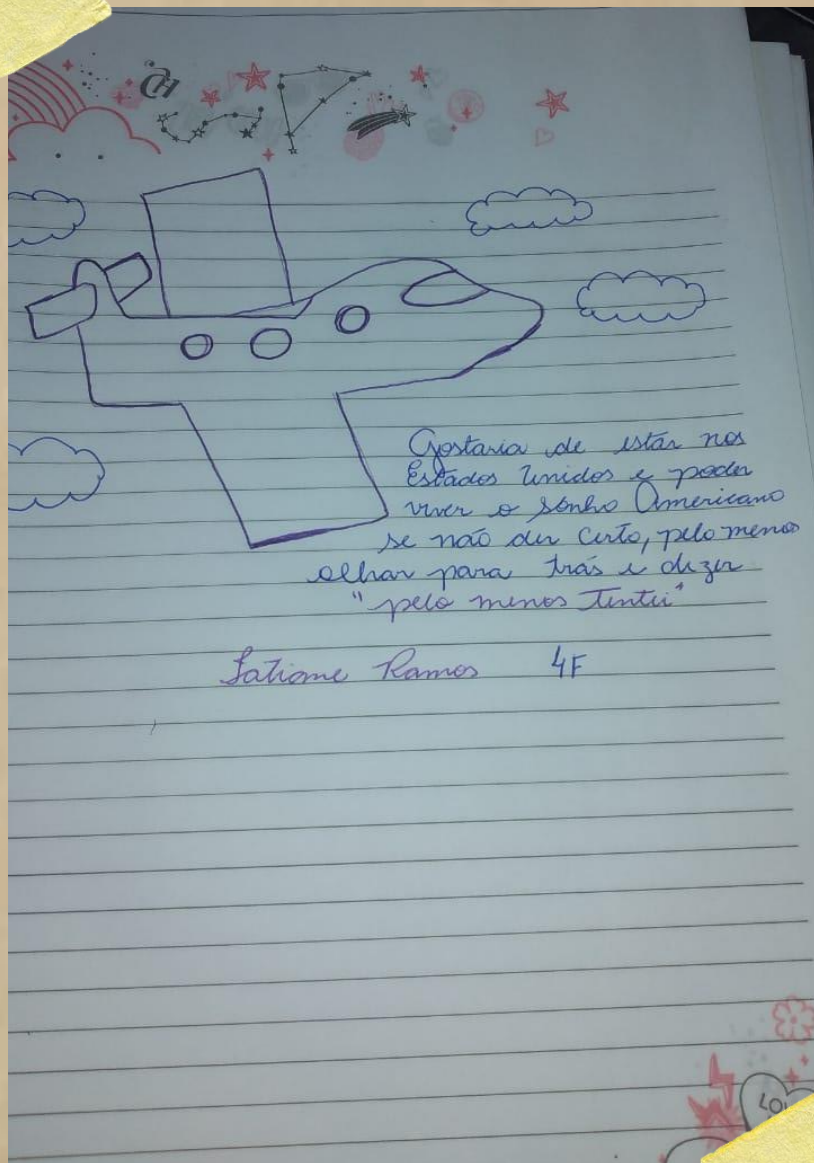 Gostaria de estar nos
Estados Unidos e poder
viver o sonho Americano
se não der certo, pelo menos
olhar para trás e dizer
"pelo menos tentei"
Tatiane Ramos 4F